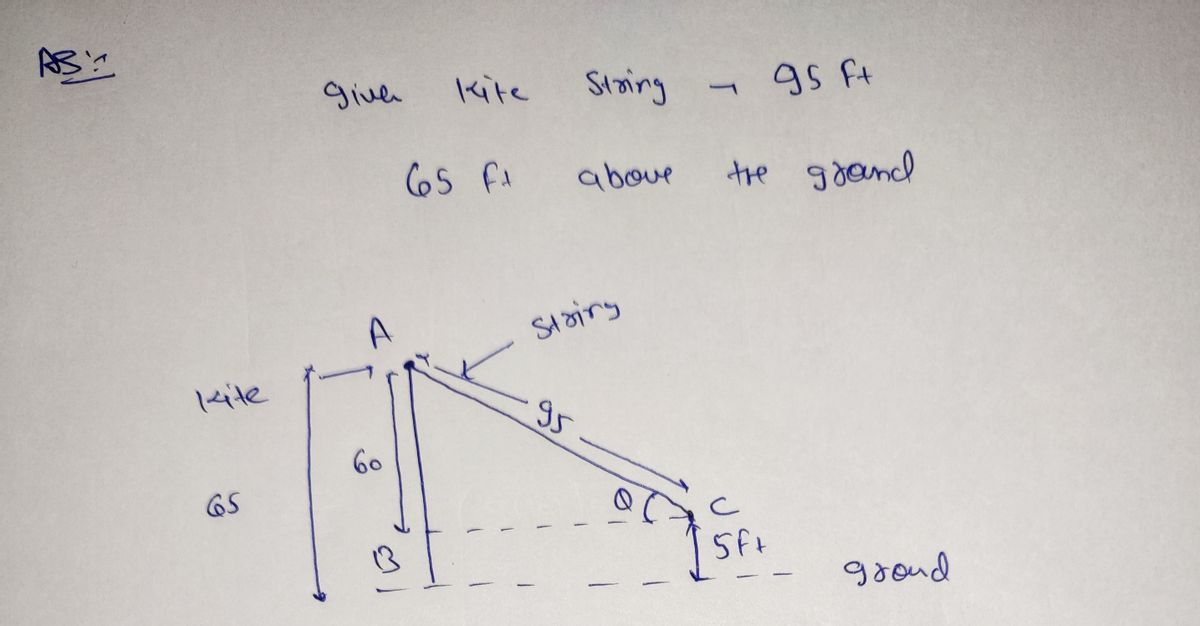 AB:-
given kite string → 95 ft
65 ft above the ground
A
string
kite
95
60
65
θ
C
B
5ft
ground